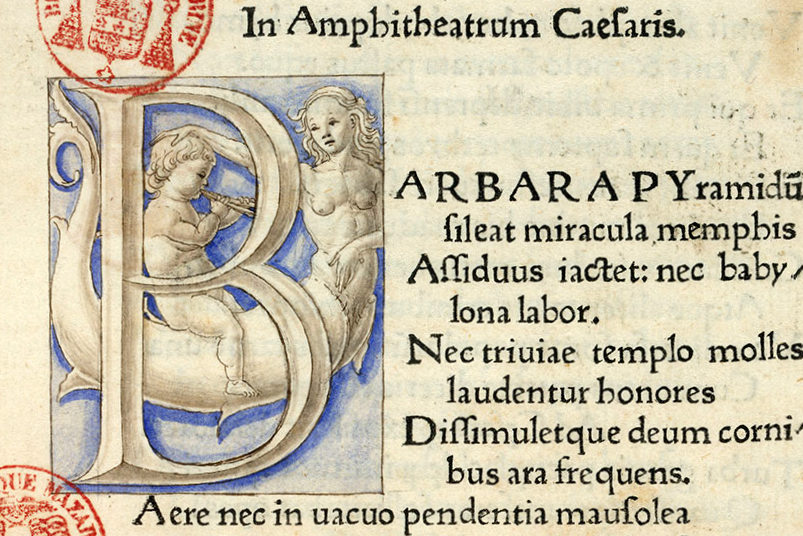 In Amphitheatrum Caeſaris.
BARBARA PYramidū
ſileat miracula memphis
Aſſiduus iactet: nec baby/
lona labor.
Nec triuiae templo molles
laudentur honores
Diſſimuletque deum corni/
bus ara frequens.
Aere nec in uacuo pendentia mauſolea